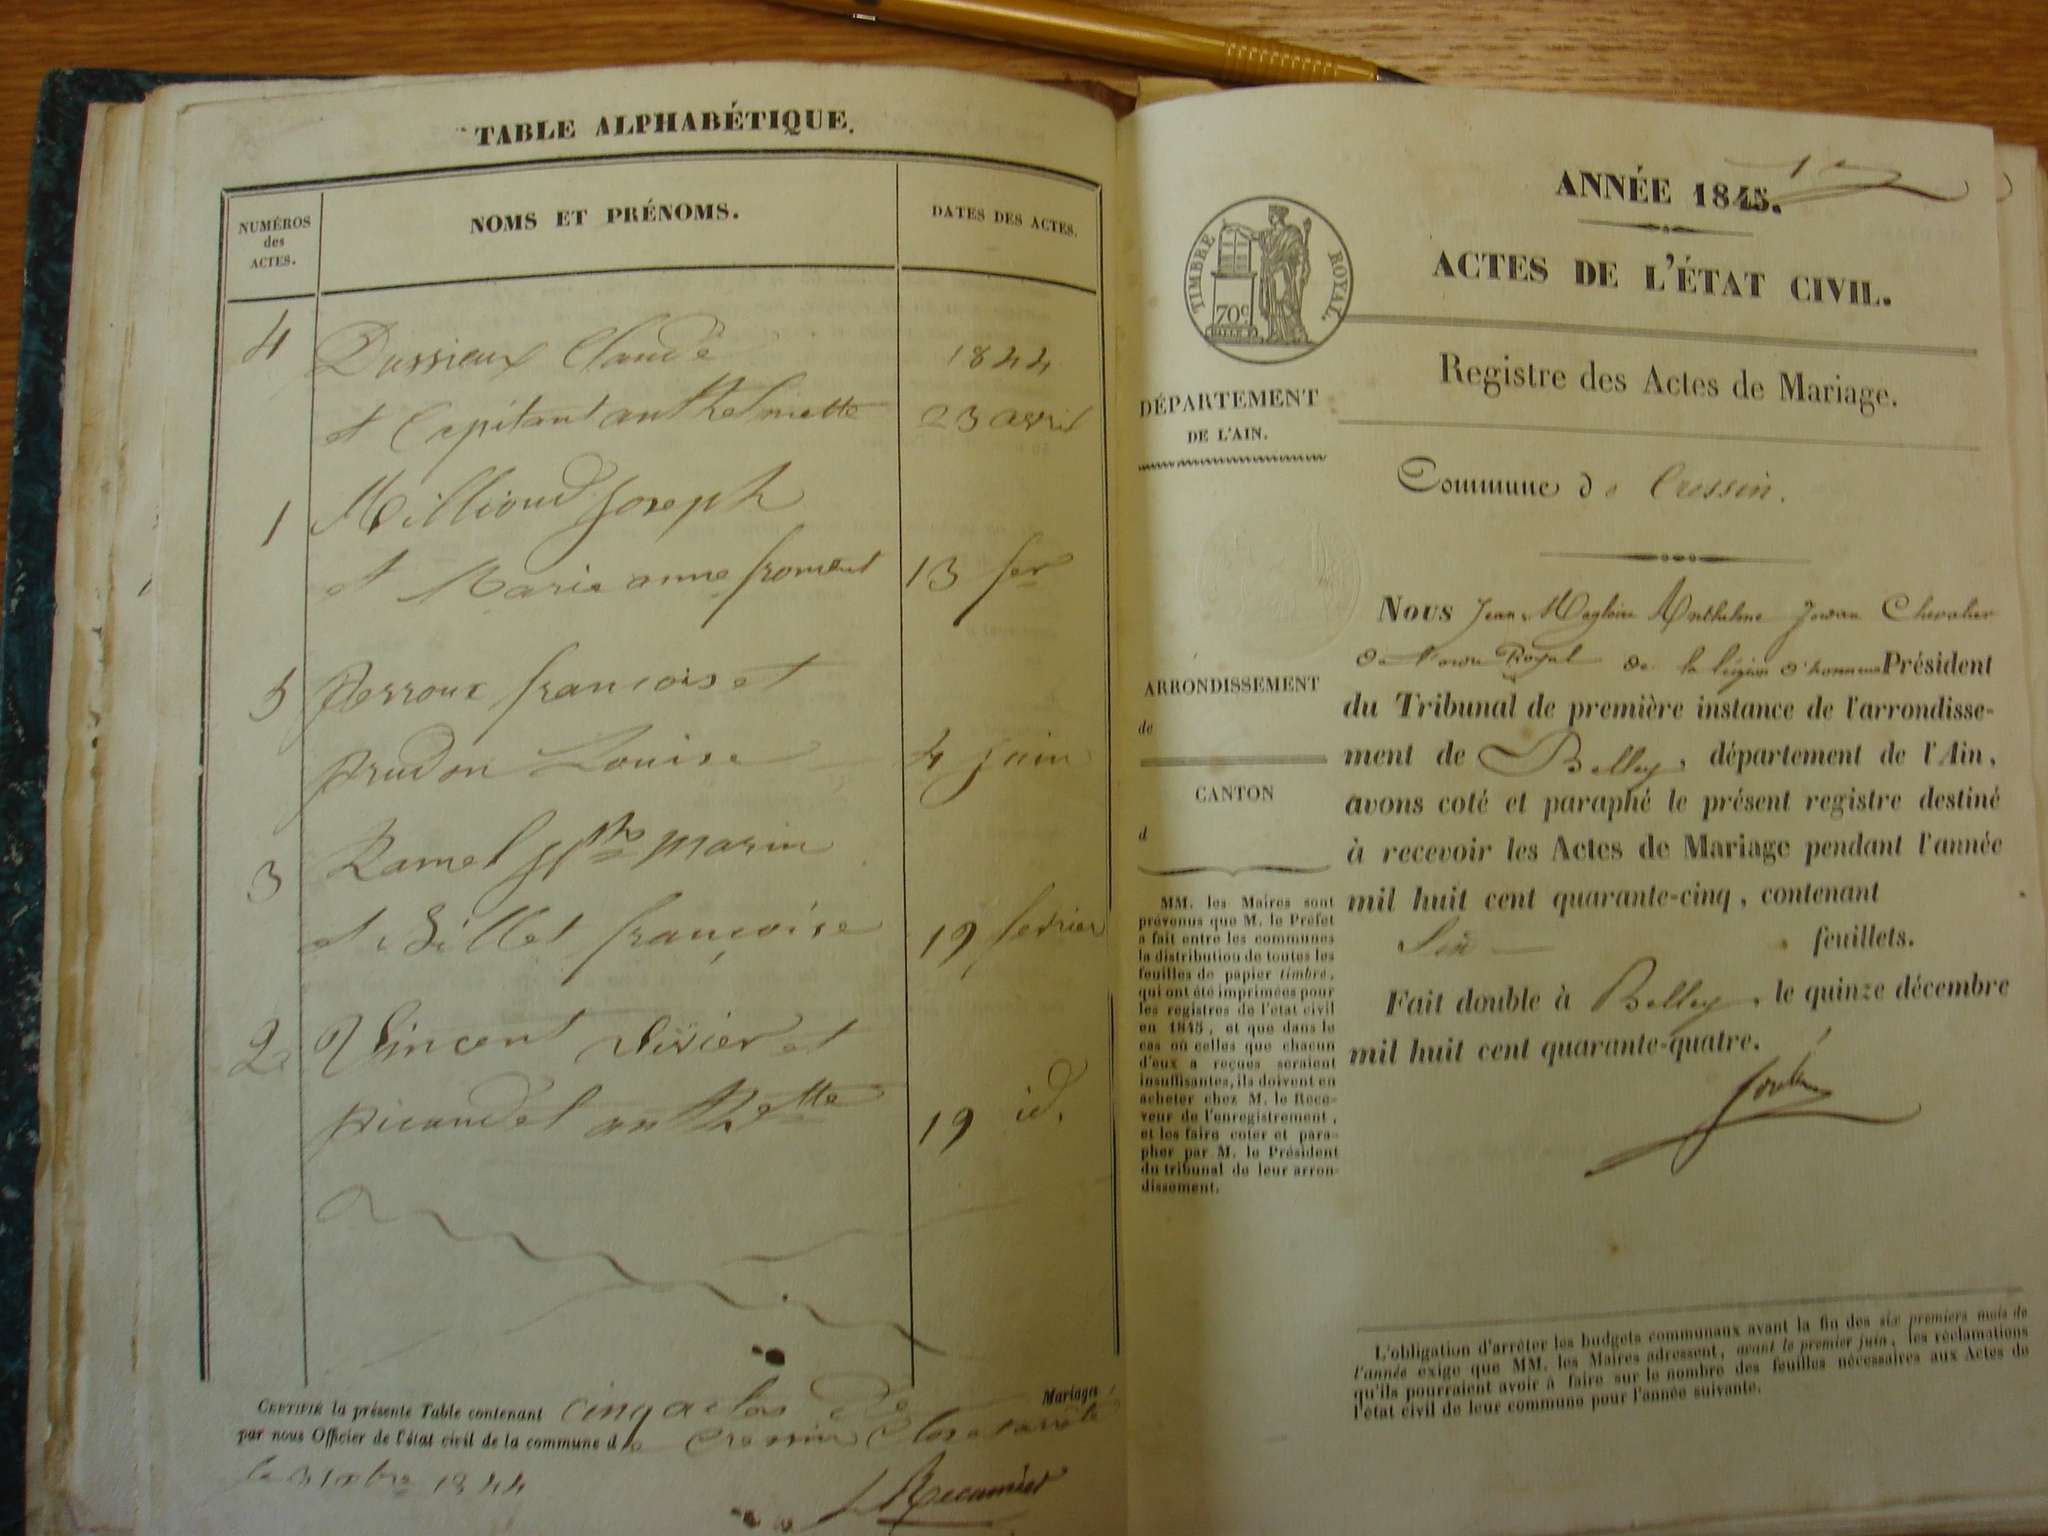 TABLE ALPHABÉTIQUE.
NUMÉROS
des
ACTES.
NOMS ET PRÉNOMS.
DATES DES ACTES.
4 Dussieux Claude 1844
et Capitant anthelmette 23 avril
1 Millioud Joseph
et Marie anne froment 13 fer
5 Perroux francois et
prudon Louise 4 juin
3 Ramel jph marin
et Billet françoise 19 fevrier
2 Vincent et
picandet anthette 19 id.
CERTIFIÉ la présente Table contenant cinq actes de Mariages
par nous Officier de l'état civil de la commune de Cressin Clos et arrêté
le 31 xbre 1844
Recamier
1er
ANNÉE 1845.
ACTES DE L'ÉTAT CIVIL.
TIMBRE ROYAL.
70c
Registre des Actes de Mariage.
DÉPARTEMENT
DE L'AIN.
Commune de Cressin.
NOUS Jean Magloire Anthelme Chevalier
de l'ordre Royal de la légion d'honneur Président
du Tribunal de première instance de l'arrondisse-
ment de Belley, département de l'Ain,
avons coté et paraphé le présent registre destiné
à recevoir les Actes de Mariage pendant l'année
mil huit cent quarante-cinq, contenant
feuillets.
Fait double à Belley, le quinze décembre
mil huit cent quarante-quatre.
ARRONDISSEMENT
de
CANTON
d
MM. les Maires sont
prévenus que M. le Préfet
a fait entre les communes
la distribution de toutes les
feuilles de papier timbré,
qui ont été imprimées pour
les registres de l'état civil
en 1845, et que dans le
cas où celles que chacun
d'eux a reçues seraient
insuffisantes, ils doivent en
acheter chez M. le Rece-
veur de l'enregistrement,
et les faire coter et para-
pher par M. le Président
du tribunal de leur arron-
dissement.
L'obligation d'arrêter les budgets communaux avant la fin des six premiers mois de
l'année exige que MM. les Maires adressent, avant le premier juin, les réclamations
qu'ils pourraient avoir à faire sur le nombre des feuilles nécessaires aux Actes de
l'état civil de leur commune pour l'année suivante.